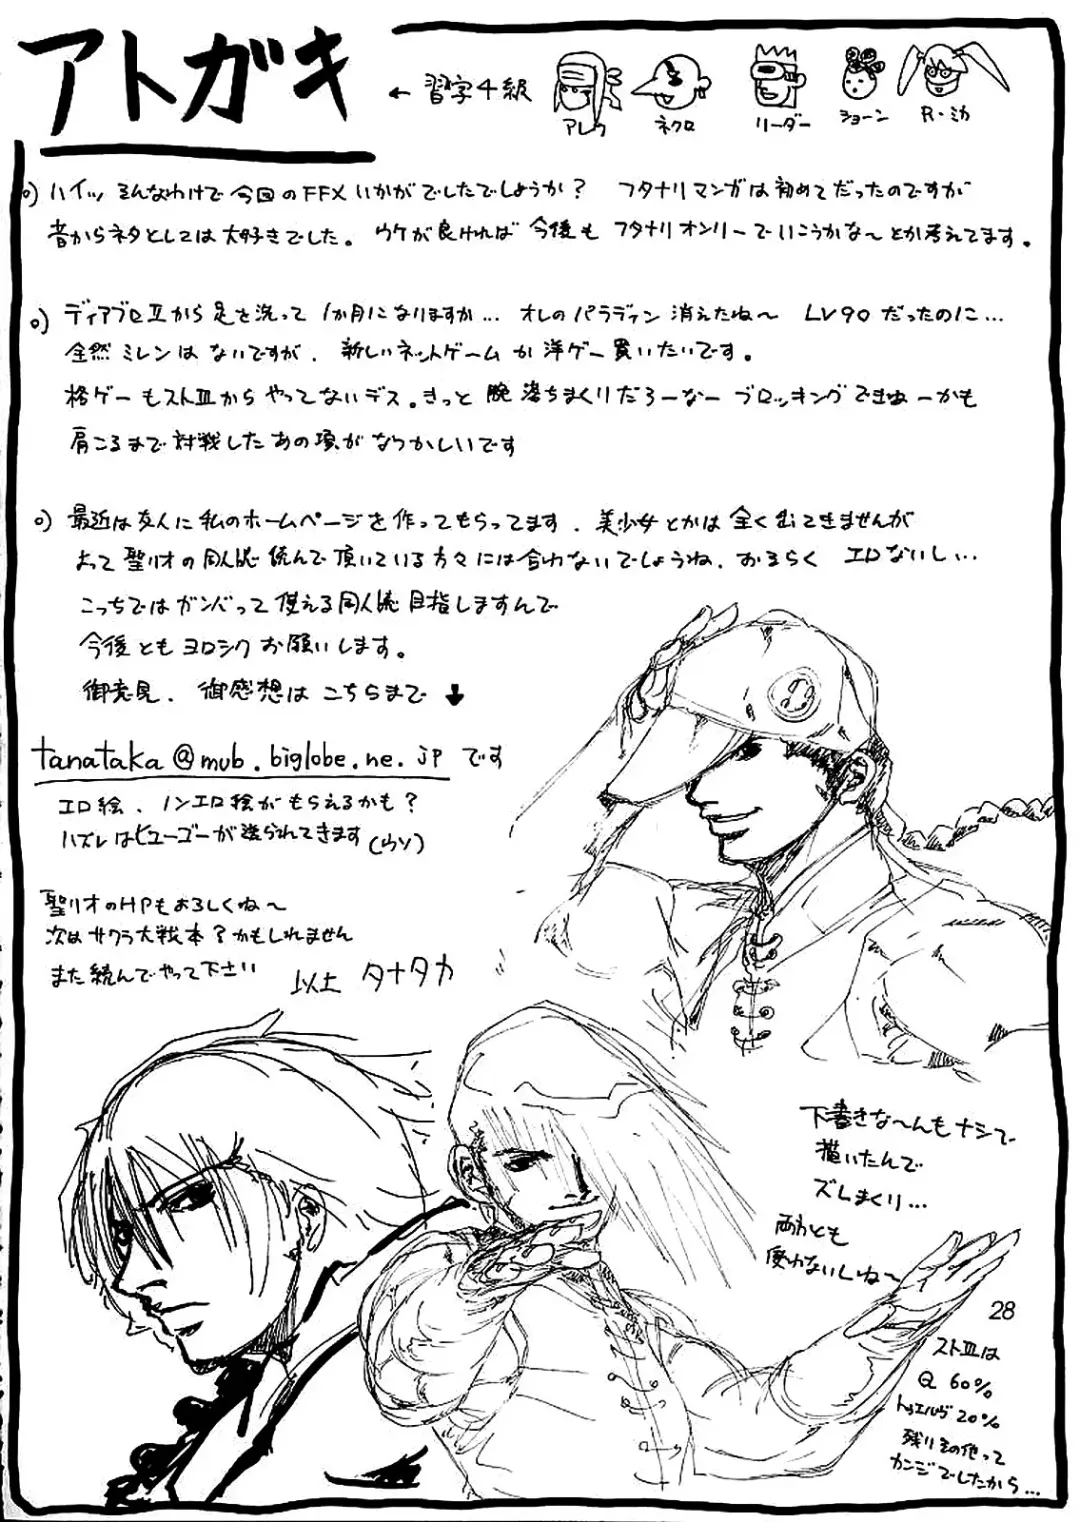 アトガキ
← 習字4級
アレク
ネクロ
リーダー
ショーン
R・ミカ
o) ハイッ そんなわけで今回のFFXいかがでしたでしょうか? フタナリマンガは初めてだったのですが
昔からネタとしては大好きでした。 ウケが良ければ 今後も フタナリオンリーでいこうかな〜とか考えてます。
o) ディアブロⅡから足を洗って 1か月になりますか… オレのパラディン 消えたね〜 LV90だったのに…
全然ミレンはないですが、新しいネットゲームか洋ゲー買いたいです。
格ゲーもストⅢからやってないデス。きっと腕落ちまくりだろーなー ブロッキングできねーかも
肩こるまで対戦したあの頃がなつかしいです
o) 最近は友人に私のホームページを作ってもらってます、美少女とかは全く出てきませんが
よって聖リオの同人誌読んで頂いている方々には合わないでしょうね、おそらく エロないし…
こっちではガンバって使える同人誌目指しますんで
今後ともヨロシクお願いします。
御意見、御感想はこちらまで ↓
tanataka@mub.biglobe.ne.jp です
エロ絵、ノンエロ絵がもらえるかも?
ハズレはヒューゴーが送られてきます(ウソ)
聖リオのHPもよろしくね〜
次はサクラ大戦本?かもしれません
また読んでやって下さい
以上 タナタカ
下書きな〜んもナシで
描いたんで
ズレまくり…
両方とも
使わないしね〜
28
ストⅢは
Q 60%
トゥエルヴ20%
残りその他って
カンジでしたから…